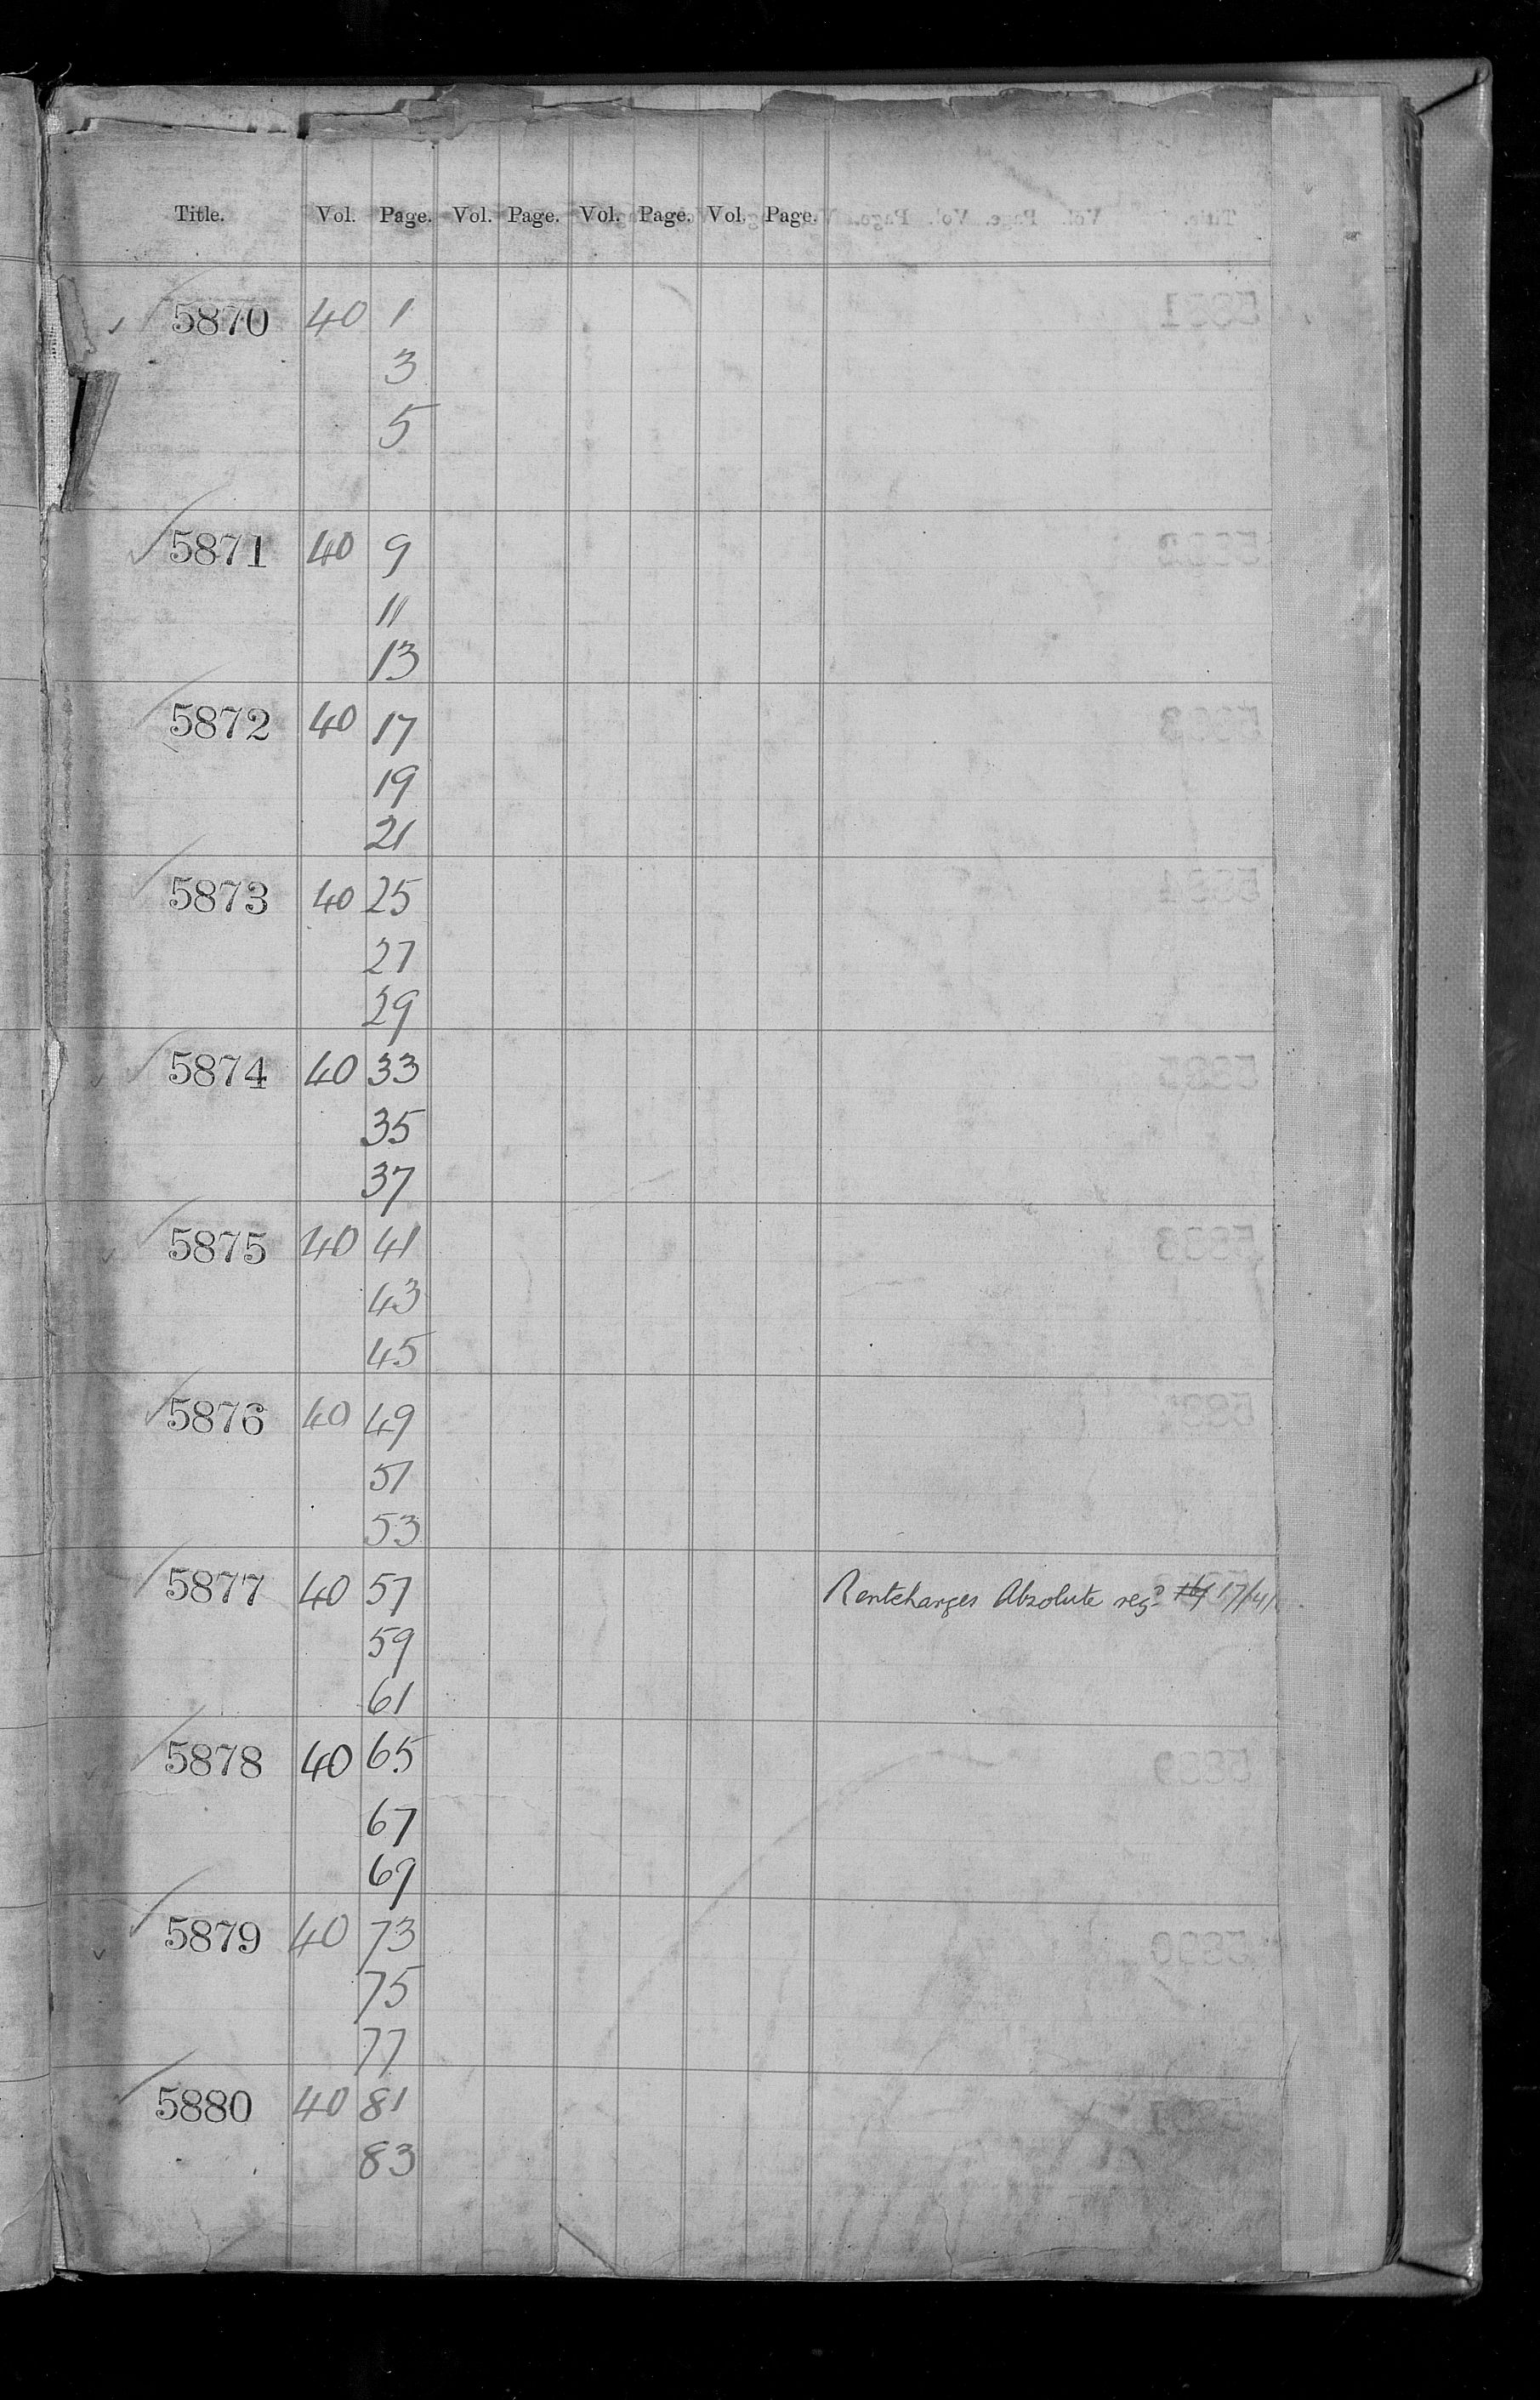 Title. Vol. Page. Vol. Page. Vol. Page. Vol. Page.
5870 40 1
3
5
5871 40 9
11
13
5872 40 17
19
21
5873 40 25
27
29
5874 40 33
35
37
5875 40 41
43
45
5876 40 49
51
53
5877 40 57 Rentcharges Absolute regd 17/41
59
61
5878 40 65
67
69
5879 40 73
75
77
5880 40 81
83